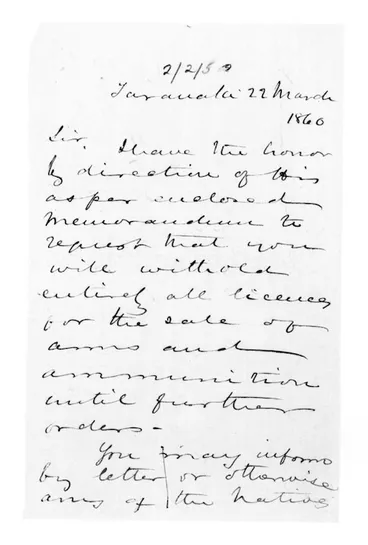 2/2/5
Taranaki 22 March
1860
Sir,
I have the honor
by direction of His
as per enclosed
memorandum to
request that you
will withold
entirely all licences
for the sale of
arms and
ammunition
until further
orders -
You may inform
by letter or otherwise
any of the Natives